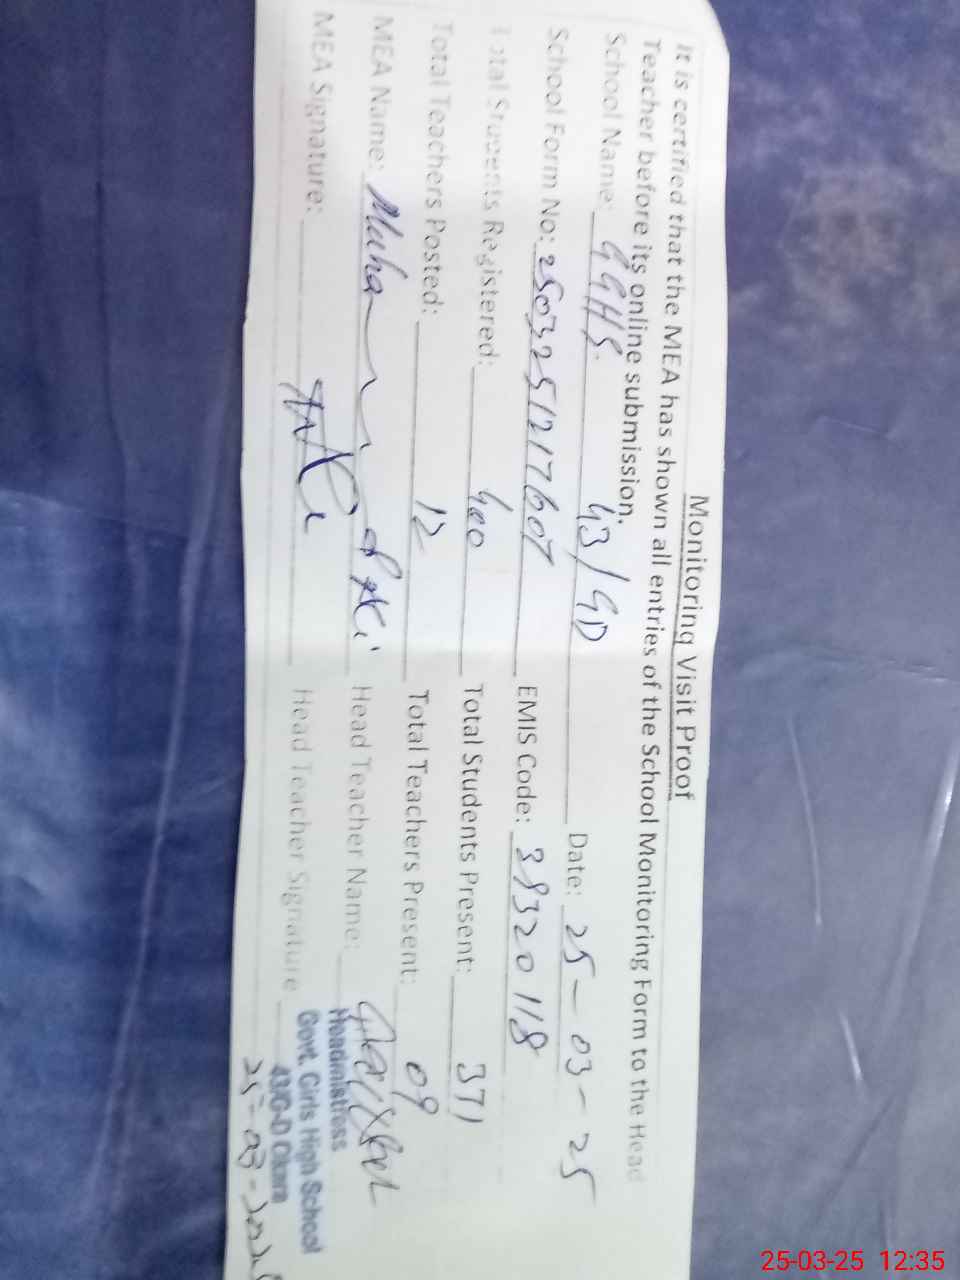 Monitoring Visit Proof
It is certified that the MEA has shown all entries of the School Monitoring Form to the Head
Teacher before its online submission.
School Name: GGHS. 43/GD Date: 25-03-25
School Form No: 2503251217607 EMIS Code: 39320118
Total Students Registered: 400 Total Students Present: 371
Total Teachers Posted: 12 Total Teachers Present: 09
MEA Name: Head Teacher Name:
MEA Signature: Head Teacher Signature
Headmistress
Govt. Girls High School
43/G-D Okara
25-03-2025
25-03-25 12:35